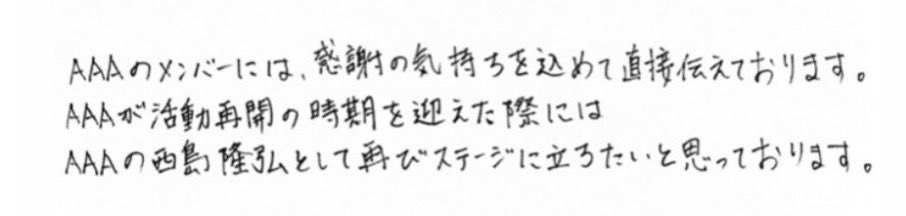 AAAのメンバーには、感謝の気持ちを込めて直接伝えております。
AAAが活動再開の時期を迎えた際には
AAAの西島隆弘として再びステージに立ちたいと思っております。